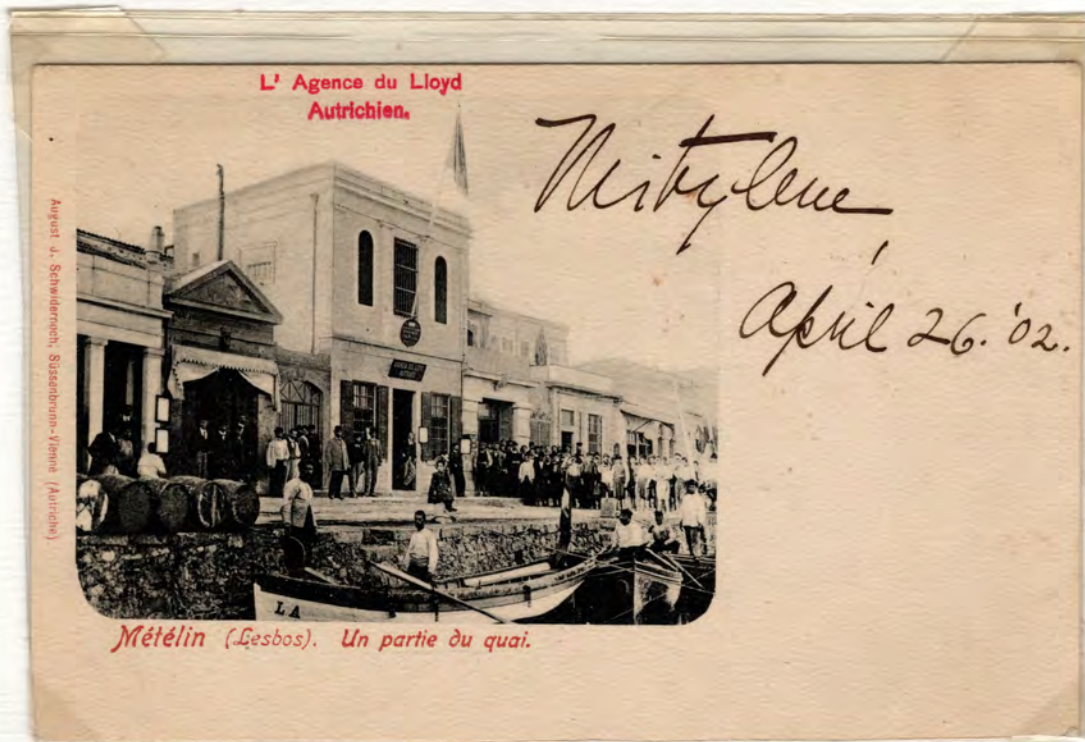 L' Agence du Lloyd
Autrichien.
Mitylene
April 26. '02.
August J. Schwidernoch, Süssenbrunn-Vienne (Autriche).
LA
Métélin (Lesbos). Un partie du quai.